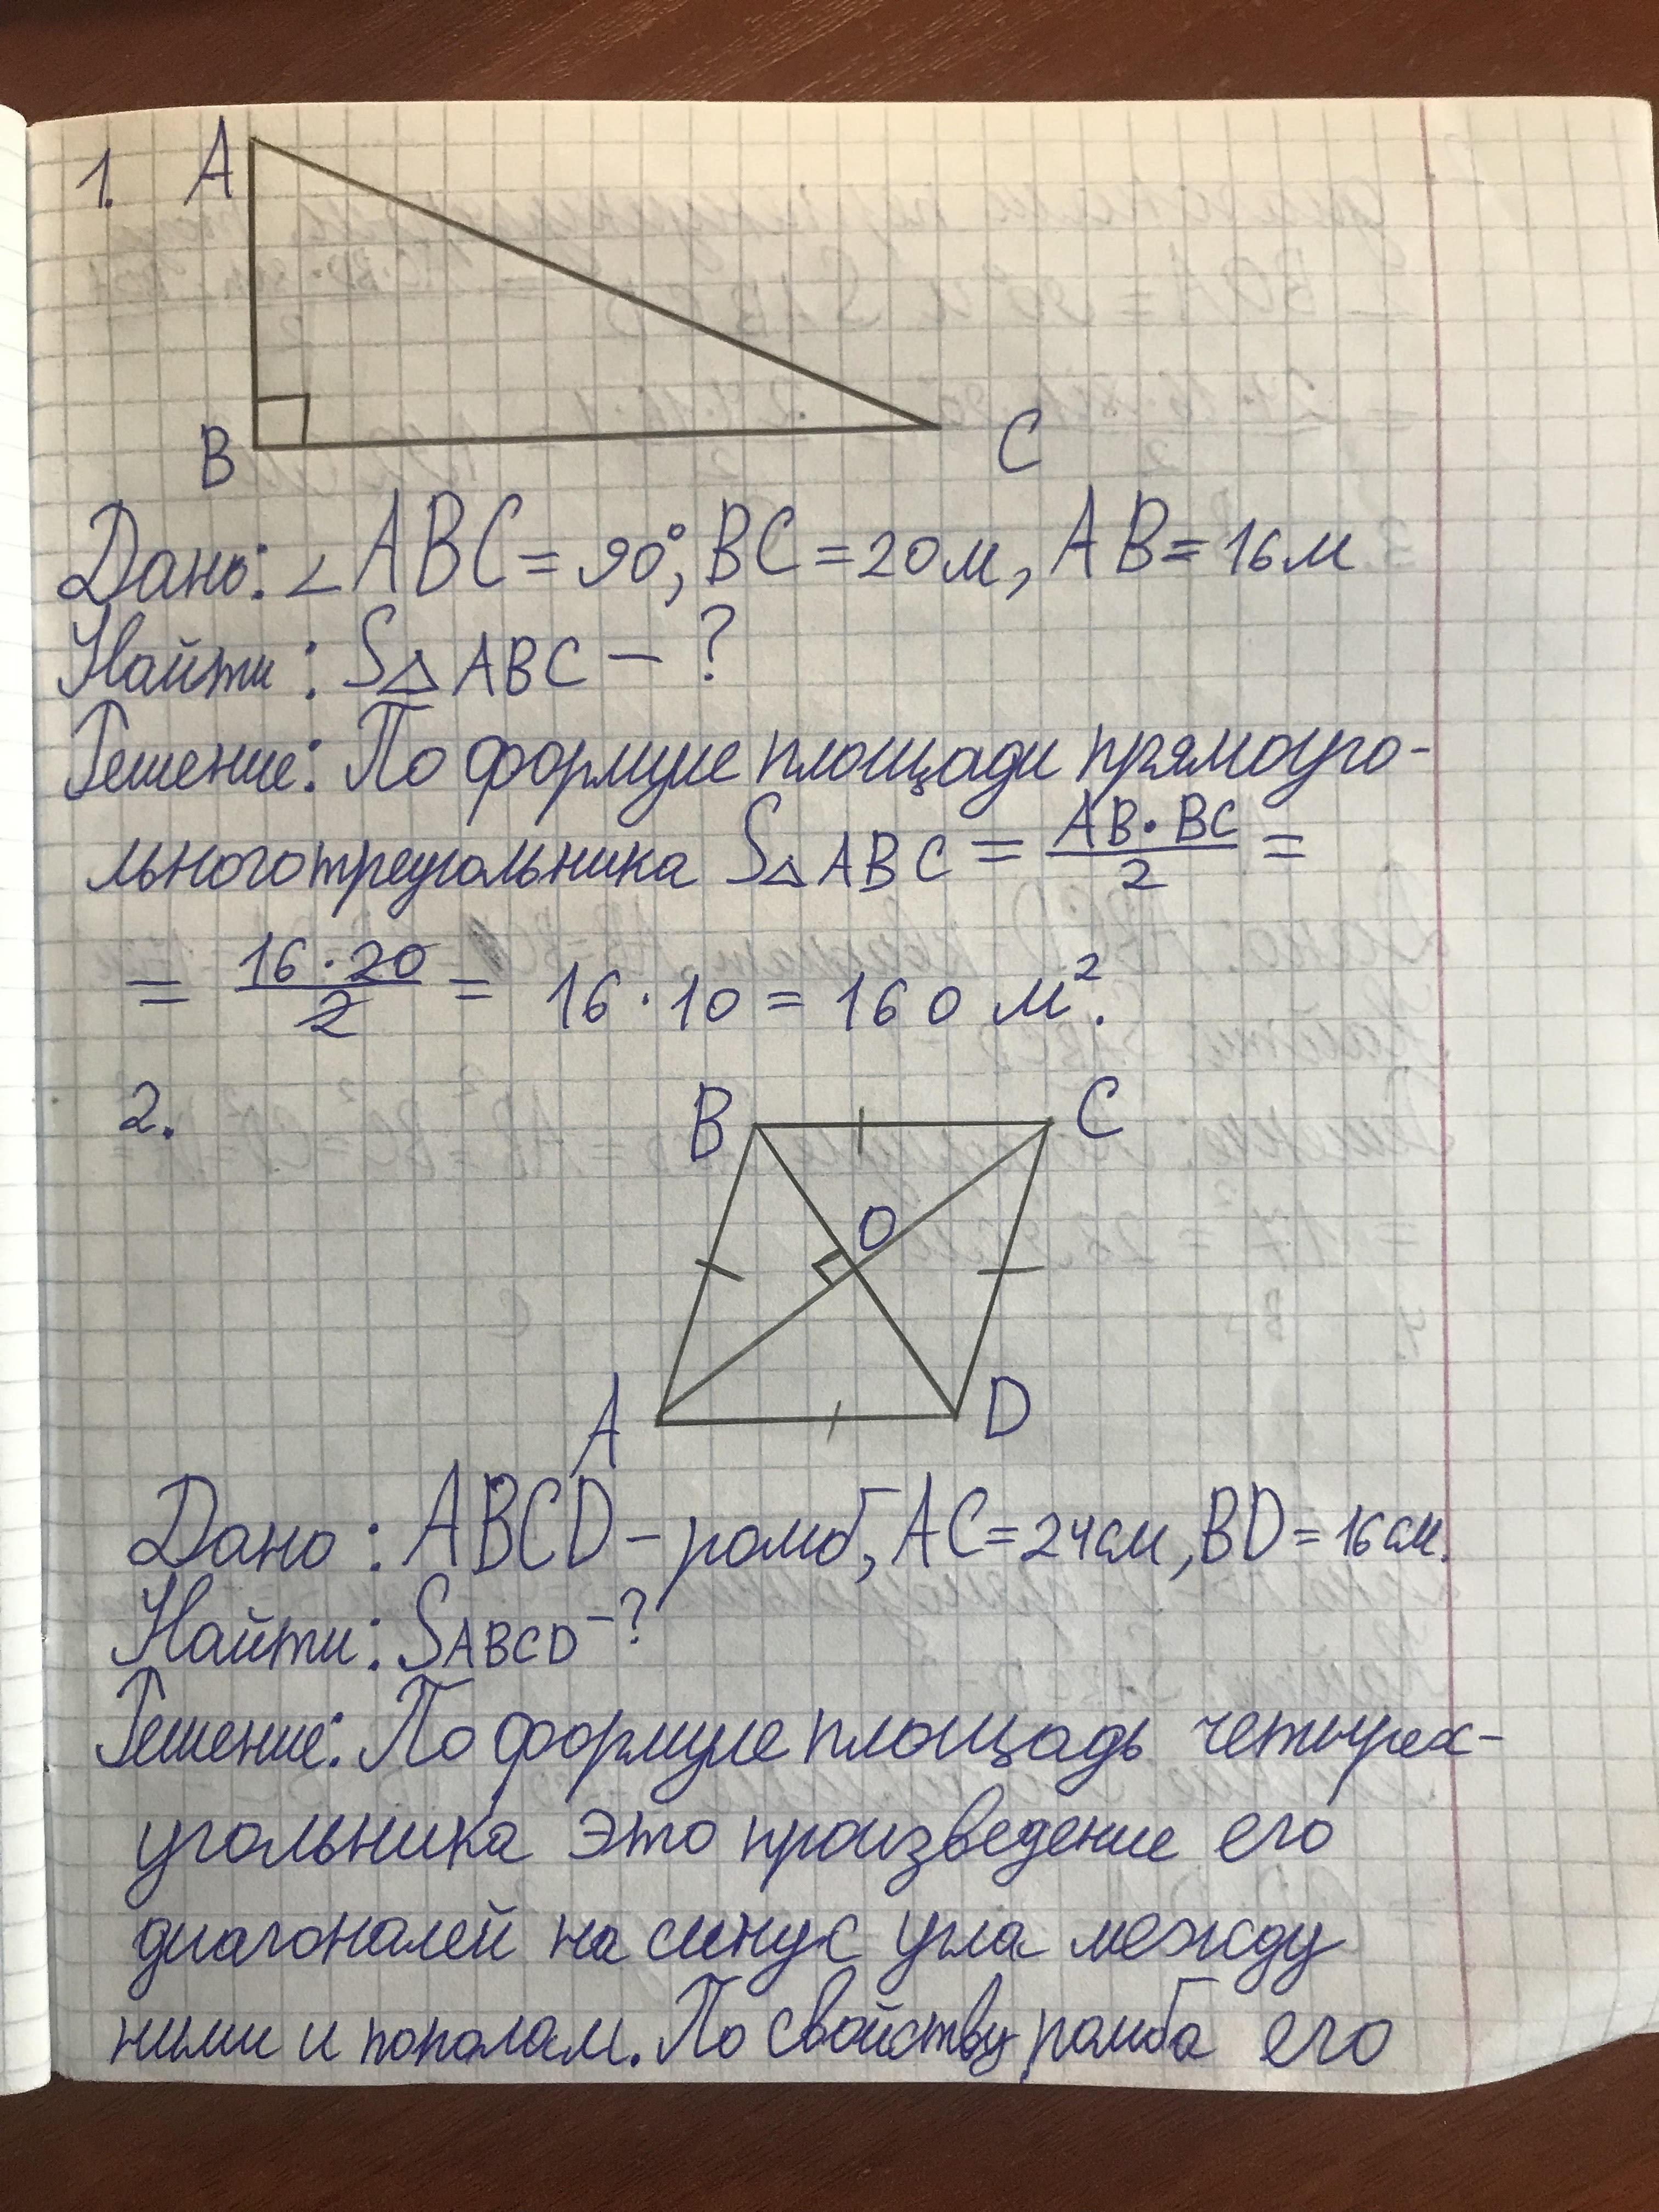 1. A
B C
Дано: ∠ABC = 90°, BC = 20м, AB = 16м
Найти: S△ABC - ?
Решение: По формуле площади прямоуго-
льного треугольника S△ABC = AB·BC/2 =
= 16·20/2 = 16·10 = 160 м².
2. B C
O
A D
Дано: ABCD - ромб, AC = 24см, BD = 16см.
Найти: SABCD - ?
Решение: По формуле площадь четырех-
угольника это произведение его
диагоналей на синус угла между
ними и пополам. По свойству ромба его